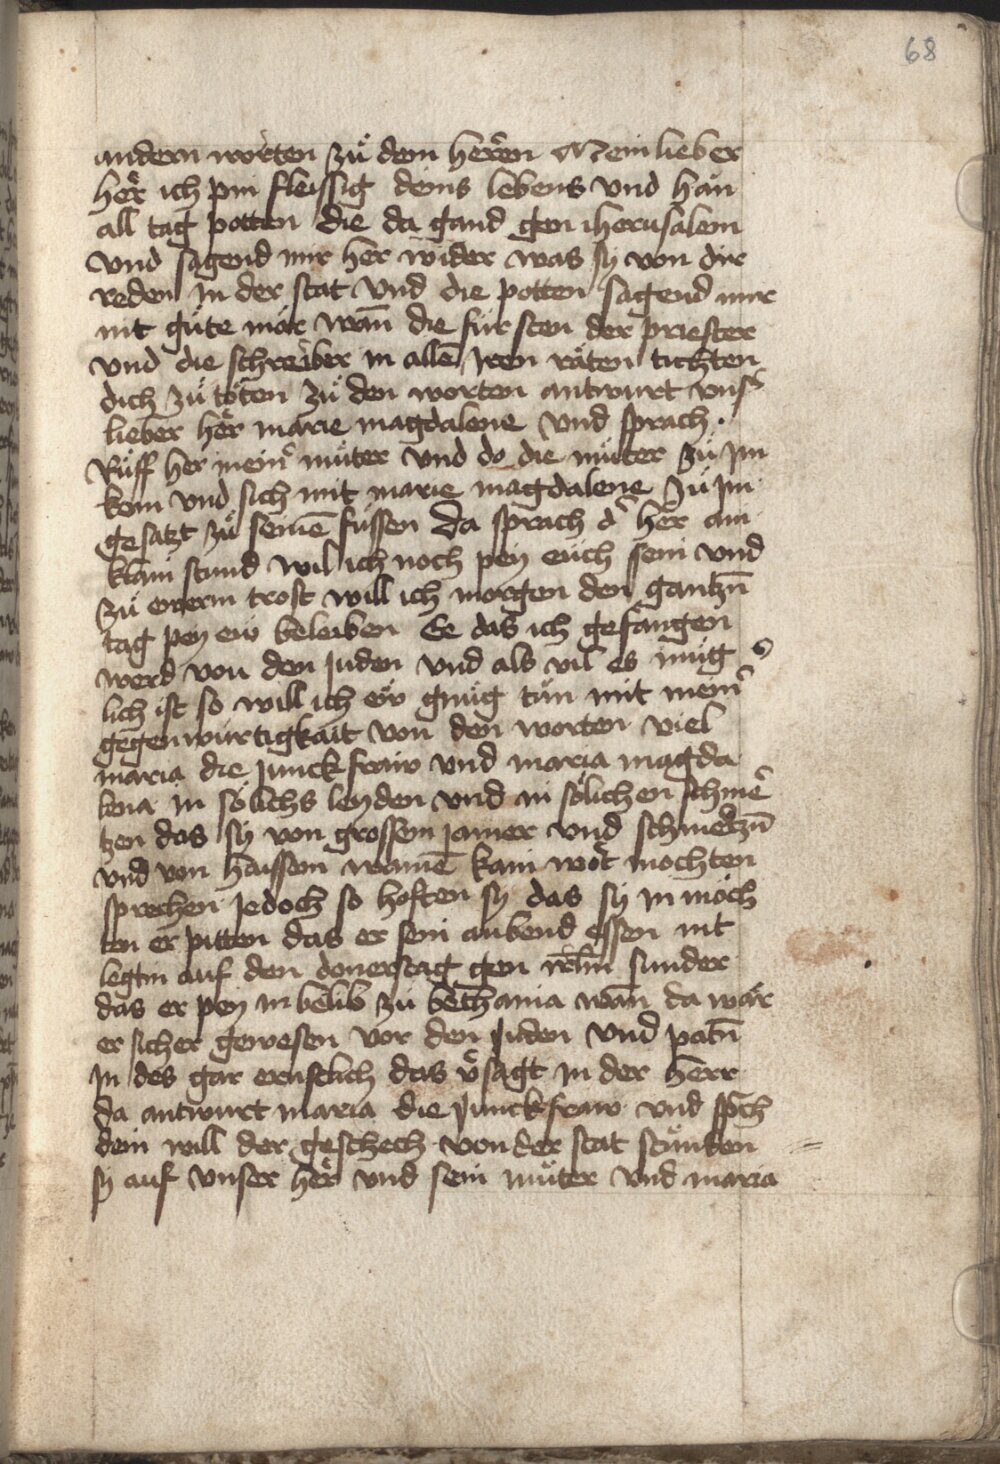 68
andern worten zů dem herren Mein lieber
her ich pin fleissig deins lebens vnd han
all tag potten die da gand gen iherusalem
vnd sagend mir her wider was sy von dir
reden in der stat vnd die potten sagend mir
nit gůte mär wan̄ die fürsten der priester
vnd die schreiber in allē Iren räten tichten
dich zů töten zů den worten antwurt vnsʳ
lieber her marie magdalene vnd sprach .
Růff her meinʳ můter vnd do die můter zů Im
kom vnd sich mit marie magdalene zů Im
gesatzt zů seinē füssen Da sprach dʳ her ain
klain stund wil ich noch pey euch sein vnd
zů ewerm trost will ich morgen den gantzn̄
tag pey ew beleiben Ee das ich gefangen
werd von den Juden vnd als vil es müg
lich ist so will ich ew gnůg tůn mit meinʳ
gegenwürtigkait von den worten viel
maria die junckfraw vnd maria magda
lena in sölichs leyden vnd in sölichen schmeʳ
tzen das sy von grossem jamer vnd schmertzn̄
vnd von haissem wainē kain wort mochten
sprechen Jedoch so hoften sy das sy in möch
ten er pitten das er sein aubend essen nit
legtin auf den donerstag gen irlm̄ sunder
das er pey in belib zů bethania wan̄ da wär
er sicher gewesen vor den Juden vnd patn̄
In des gar ernstlich das v̊sagt in der herr
da antwurt maria die Junckfraw vnd spch
dein will der geschech von der stat stůnden
sy auf vnser her vnd sein můter vnd maria